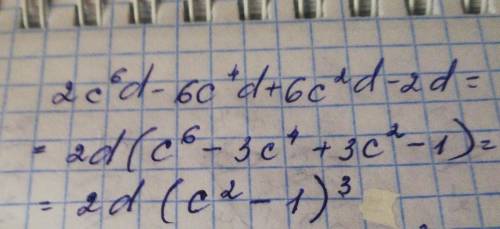 2c⁶d - 6c⁴d + 6c²d - 2d =
= 2d(c⁶ - 3c⁴ + 3c² - 1) =
= 2d(c² - 1)³